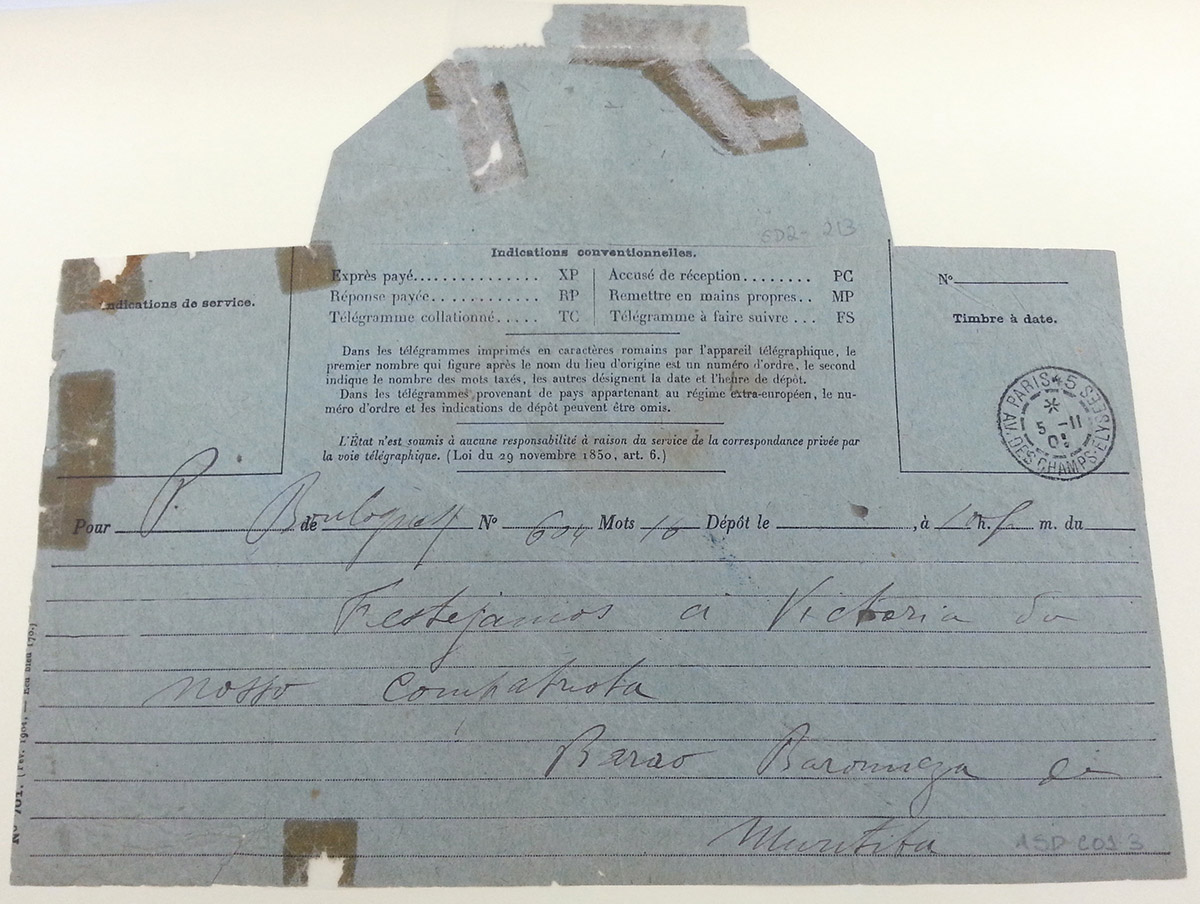 ED2- 213
Indications conventionnelles.
Exprès payé.............. XP
Réponse payée............ RP
Télégramme collationné..... TC
Accusé de réception........ PC
Remettre en mains propres.. MP
Télégramme à faire suivre... FS
Indications de service.
Nº
Timbre à date.
Dans les télégrammes imprimés en caractères romains par l'appareil télégraphique, le
premier nombre qui figure après le nom du lieu d'origine est un numéro d'ordre, le second
indique le nombre des mots taxés, les autres désignent la date et l'heure de dépôt.
Dans les télégrammes provenant de pays appartenant au régime extra-européen, le nu-
méro d'ordre et les indications de dépôt peuvent être omis.
L'État n'est soumis à aucune responsabilité à raison du service de la correspondance privée par
la voie télégraphique. (Loi du 29 novembre 1850, art. 6.)
PARIS 45 AV. DES CHAMPS-ELYSEES
5 -11
Pour P. de Boulogne Nº 604 Mots 16 Dépôt le , à h. m. du
Festejamos a Victoria do
nosso compatriota
Barao Baroneza de
Muritiba
Nº 701. (Fév. 1904. —
ASD C01 3